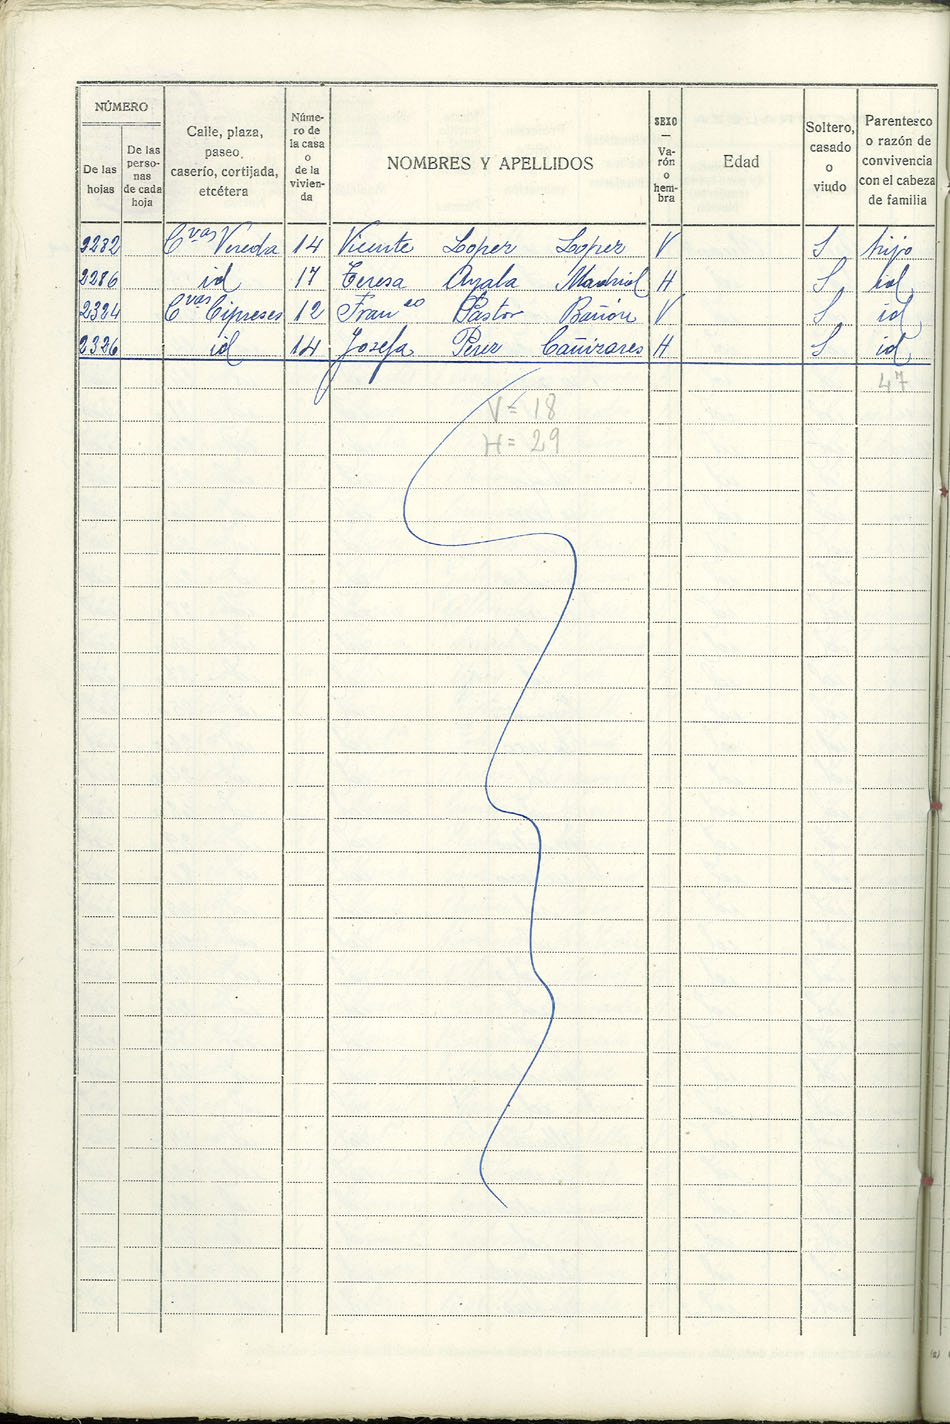 NÚMERO
De las hojas
De las perso- nas de cada hoja
Calle, plaza, paseo, caserío, cortijada, etcétera
Núme- ro de la casa o de la vivien- da
NOMBRES Y APELLIDOS
SEXO — Va- rón o hem- bra
Edad
Soltero, casado o viudo
Parentesco o razón de convivencia con el cabeza de familia
2282 Cvas Vereda 14 Vicente Lopez Lopez V S hijo
2286 id 17 Teresa Ayala Madrid H S id
2324 Cvas Cipreses 12 Franco Pastor Bañón V S id
2326 id 14 Josefa Perez Cañizares H S id
47
V = 18
H = 29